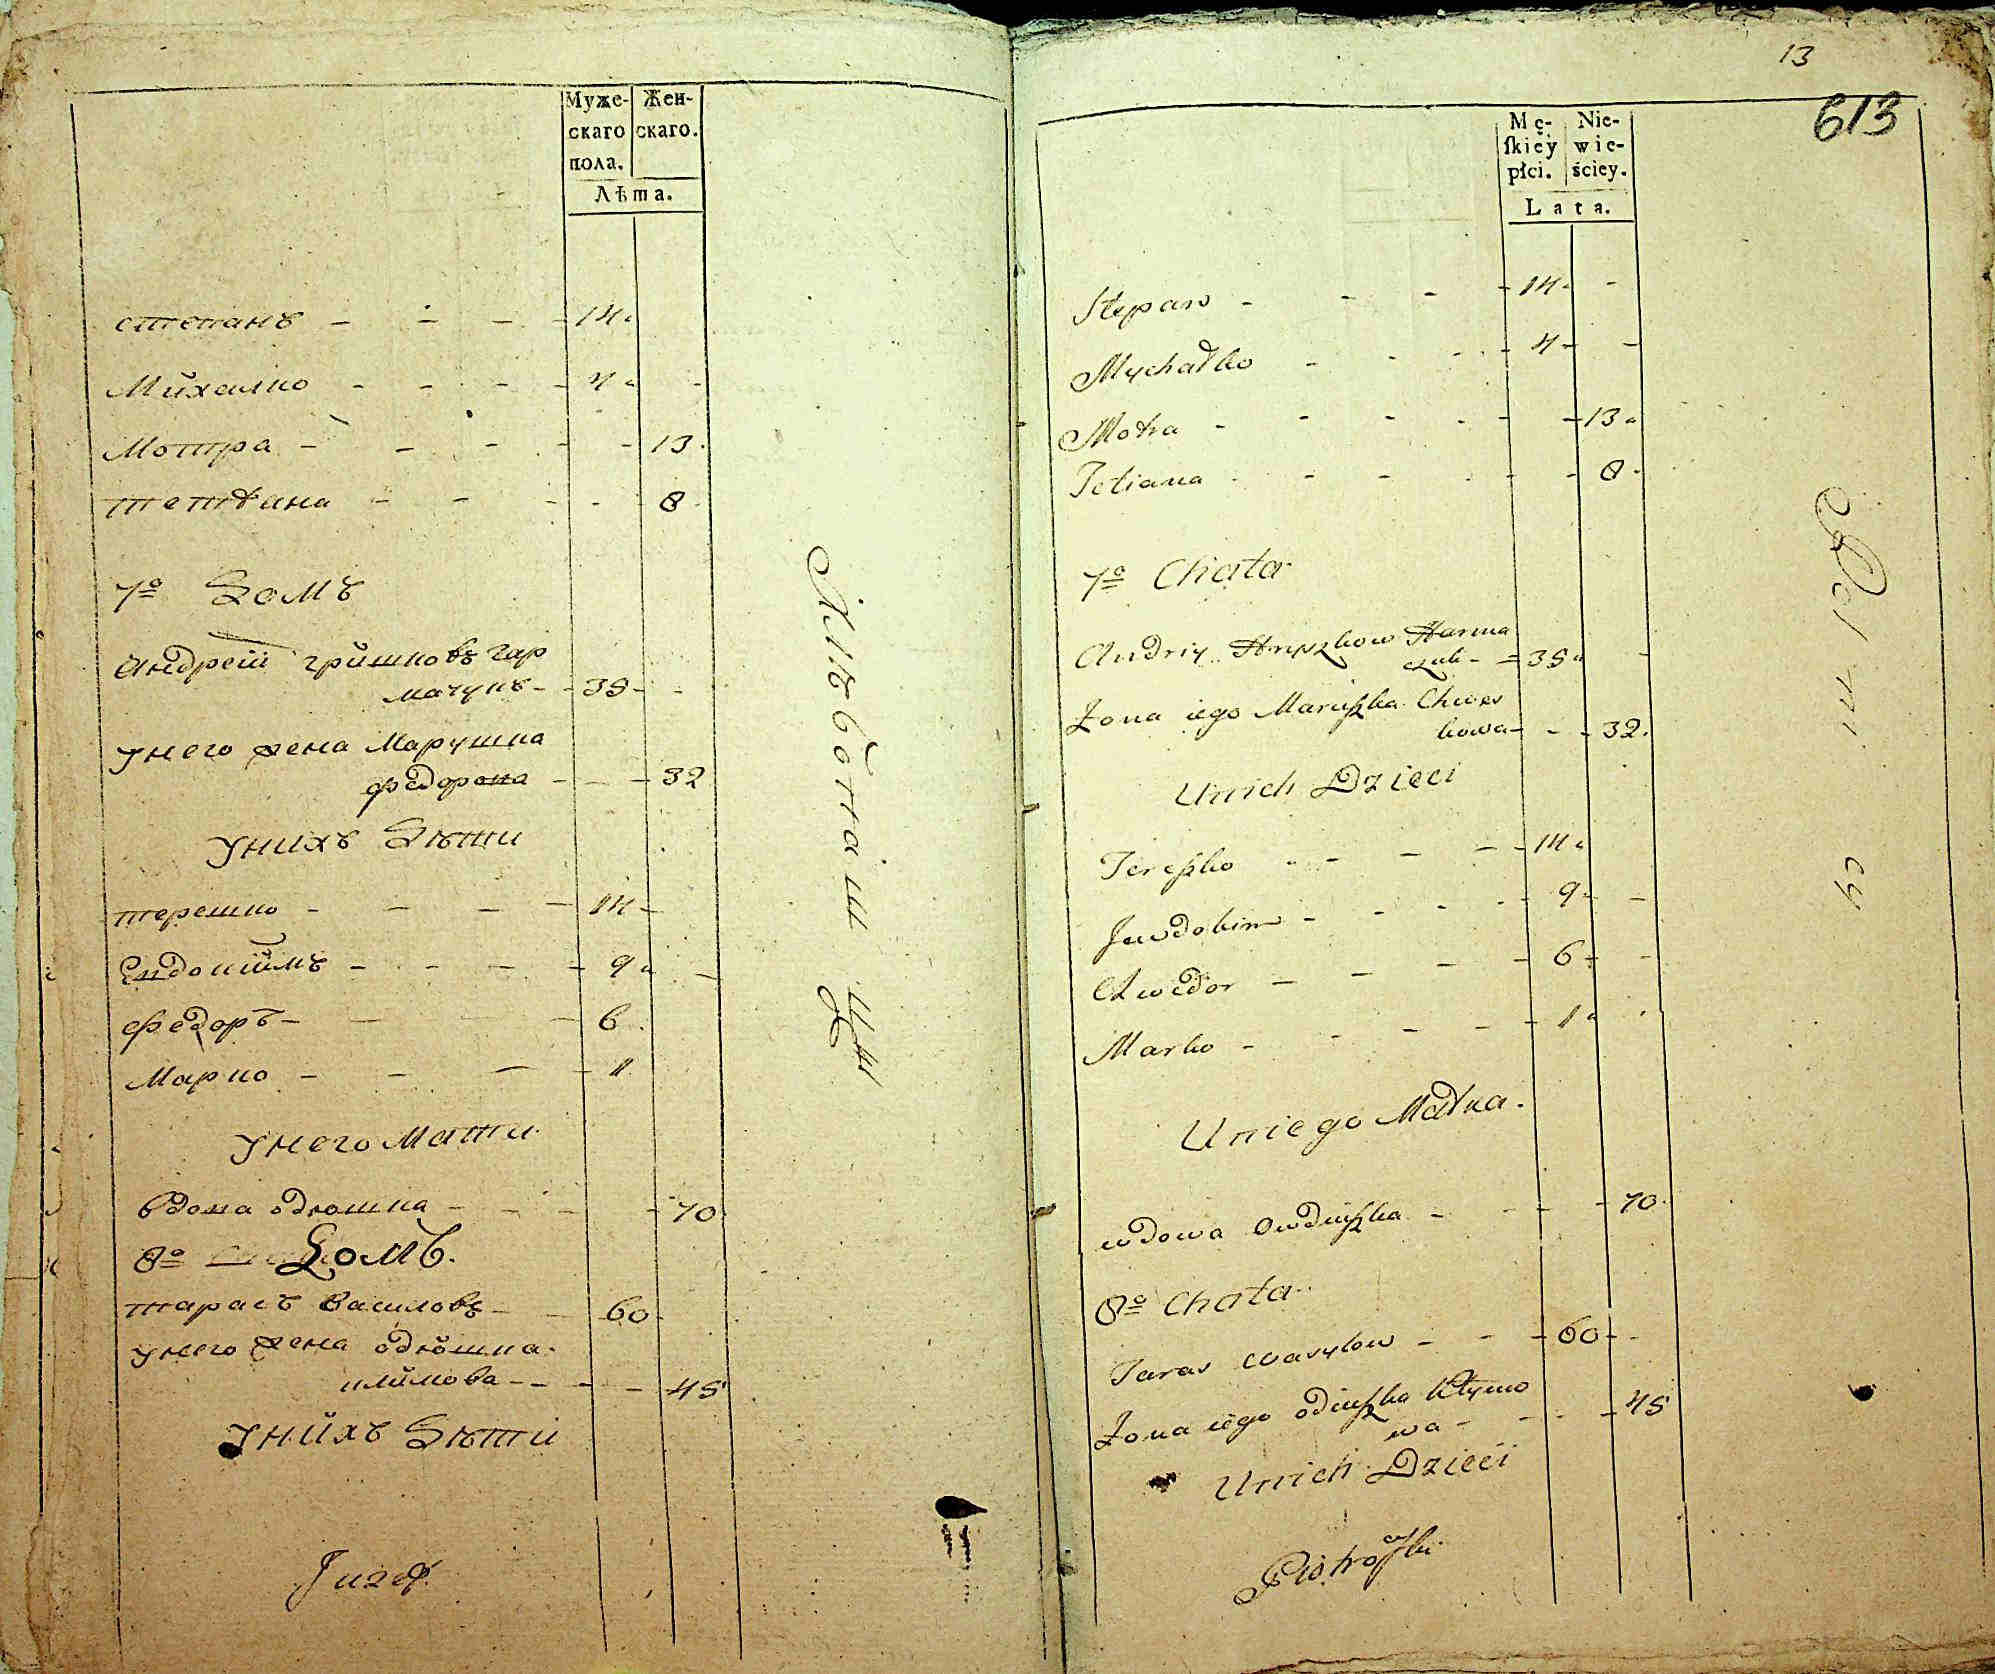 Муже- Жен-
скаго скаго.
пола.
Лѣта.
степанъ - - - - 14.
Михалко - - - - 4. -
Мотра - - - - - 13.
тетѣана - - - - - 8.
7º Домъ
андрей гришковъ гар
мачукъ - - 35 - -
унего жена Марушка
федорова - - - 32
унихъ Дѣти
терешко - - - - 14 -
Евдокимъ - - - - 9. -
федоръ - - - 6.
Марко - - - - 1
унего Мати.
вдова одюшка - - - - 70.
8º Домъ.
тарасъ василовъ - - 60.
унего жена одюшка.
климова - - - - 45
унихъ Дѣти
Juzef.
13
613
Mę- Nie-
ſkiey wie-
płci. ściey.
Lata.
Stepan - - - - 14. -
Mychałko - - - - 4 - -
Motra - - - - - - 13.
Tetiana - - - - - 8.
7º Chata.
Andriy Hryszkow Harma
czuk - = 35. -
Żona iego Maruſzka Chwes
kowa - - - 32.
Unich Dzieci
Tereſzko - - - - 14.
Jewdokim - - - - 9. -
Chwedor - - - - 6. -
Marko - - - - 1.
Uniego Matka.
wdowa Owdiuſzka - - - - 70.
8º Chata.
Taras Wasylow - - - 60 - -
Żona iego odiuſzka Kłymo
wa - - - - 45
Unich Dzieci
Piotroſki.